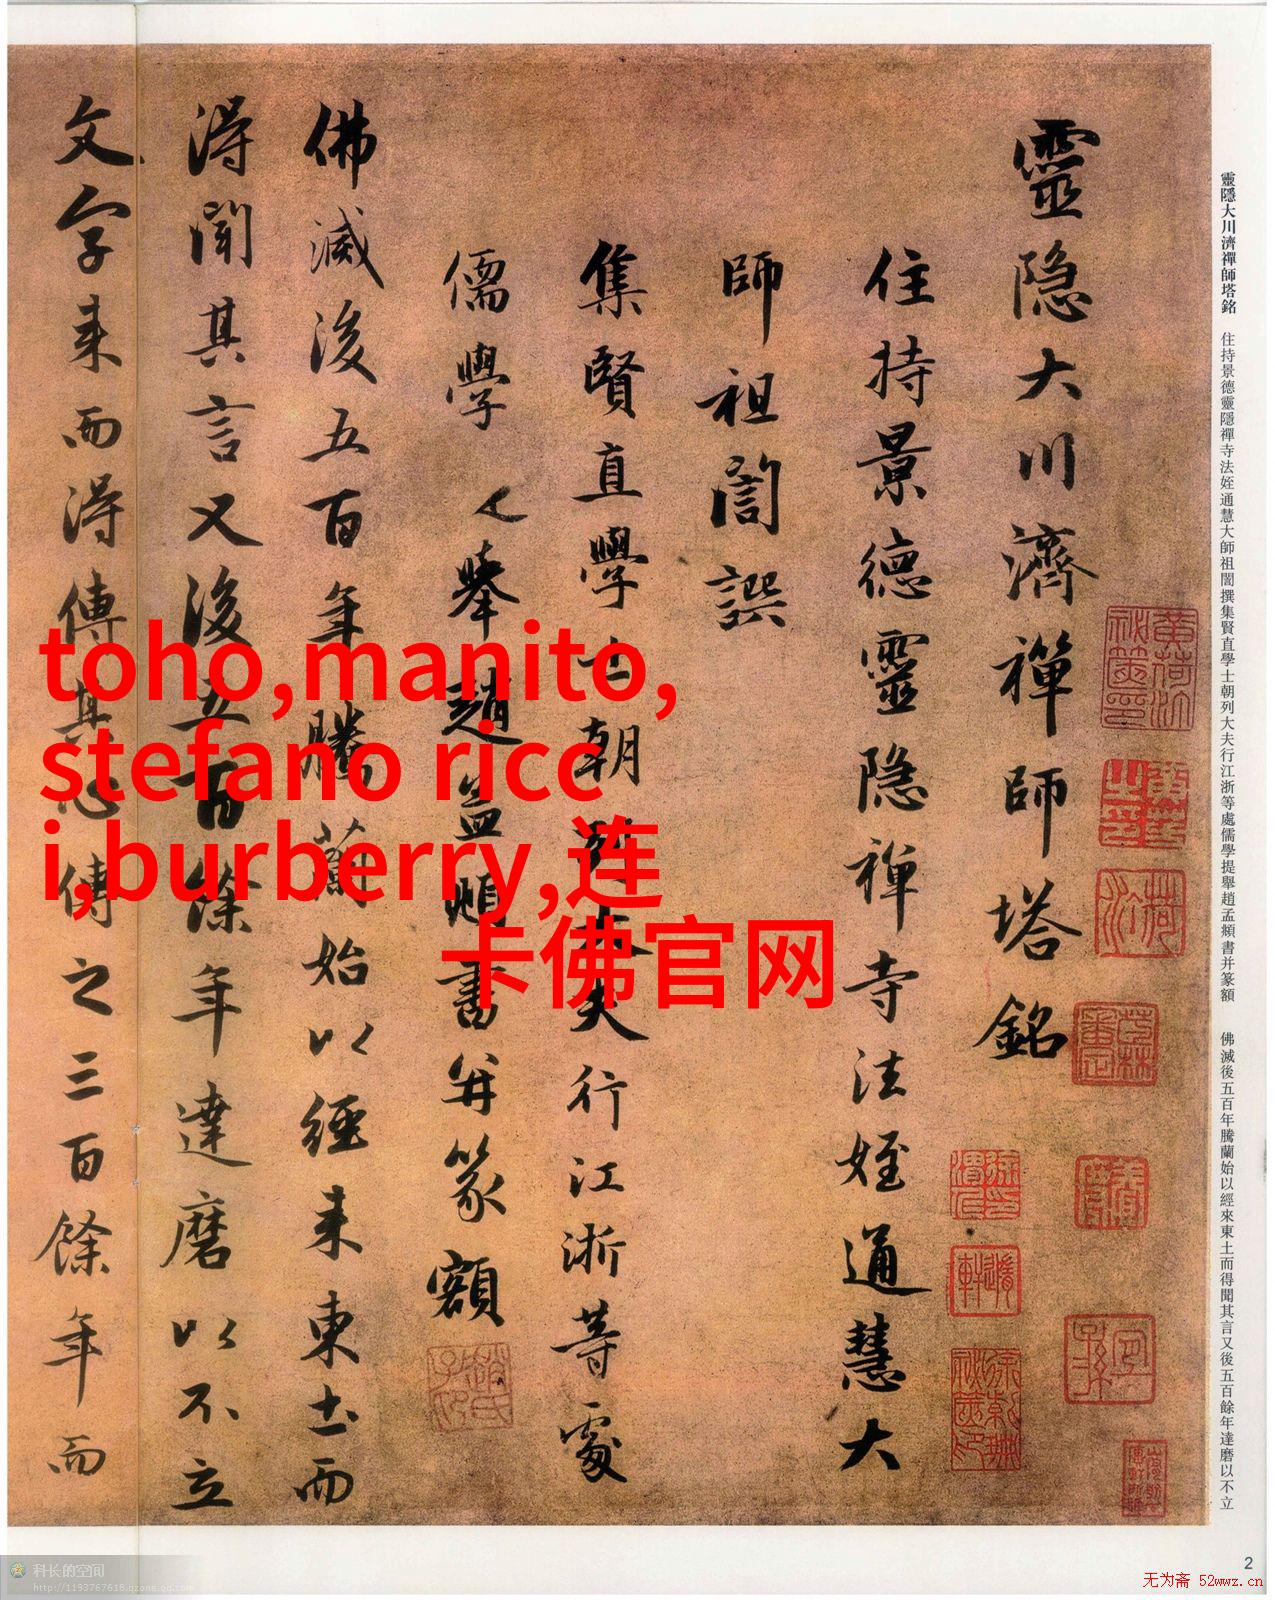 靈隐大川濟禪師塔銘
住持景德靈隐禅寺法姪通慧大
師祖誾譔
集賢直學士朝列大夫行江浙等處
儒學提舉趙孟頫書并篆額
佛滅後五百年騰蘭始以經来東土而
得聞其言又後五百餘年達磨以不立
文字来而得傳其心傳之三百餘年而
靈隱大川濟禪師塔銘 住持景德靈隱禪寺法姪通慧大師祖誾撰集賢直學士朝列大夫行江浙等處儒學提舉趙孟頫書并篆額 佛滅後五百年騰蘭始以經來東土而得聞其言又後五百餘年達磨以不立
toho,manito,
stefano ricc
i,burberry,连
卡佛官网
2
科长的空间
http://1193767618.qzone.qq.com
无为斋 52wwz.cn